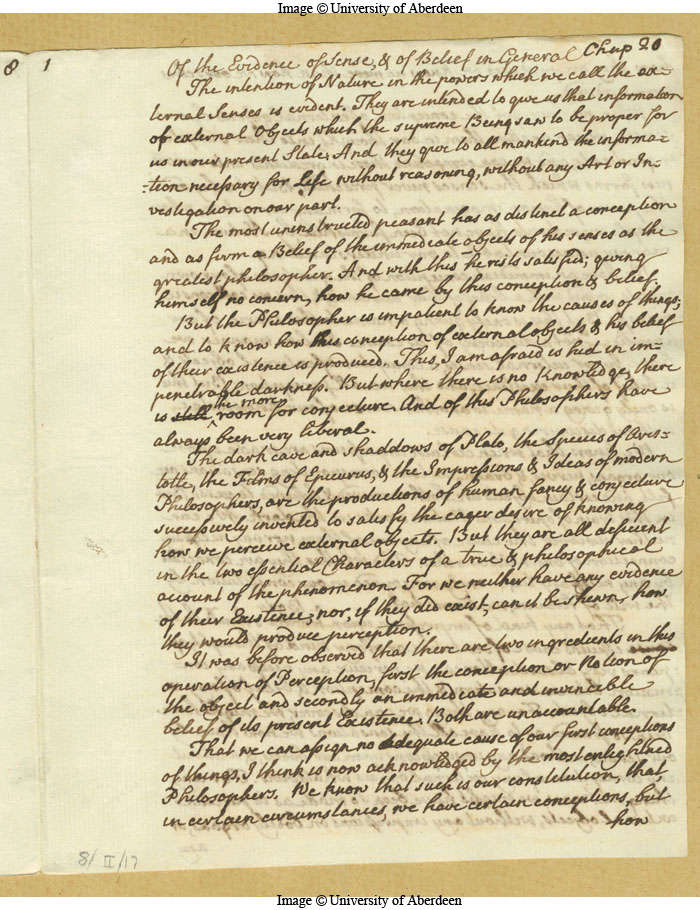 Image © University of Aberdeen
8 1
Of the Evidence of Sense, & of Belief in General Chap 20
The intention of Nature in the powers which we call the ex-
ternal Senses is evident. They are intended to give us that information
of external Objects which the supreme Being saw to be proper for
us in our present State; And they give to all mankind the informa-
-tion necessary for Life without reasoning, without any Art or In-
vestigation on our part.
The most uninstructed peasant has as distinct a conception
and as firm a Belief of the immediate objects of his senses as the
greatest philosopher. And with this he rests satisfied; giving
himself no concern, how he came by this conception & belief.
But the Philosopher is impatient to know the causes of things;
and to know how his conception of external objects & his belief
of their existence is produced. This, I am afraid is hid in im-
penetrable darkness. But where there is no Knowledge, there
is still the more room for conjecture. And of this Philosophers have
always been very liberal.
The dark cave and shaddows of Plato, the Species of Aris-
totle, the Films of Epicurus, & the Impressions & Ideas of modern
Philosophers, are the productions of human fancy & conjecture
successively invented to satisfy the eager desire of knowing
how we perceive external objects. But they are all deficient
in the two essential Characters of a true & philosophical
account of the phenomenon. For we neither have any evidence
of their Existence; nor, if they did exist, can it be shewn, how
they would produce perception.
It was before observed that there are two ingredients in this
operation of Perception, first the conception or Notion of
the object and secondly an immediate and invincible
belief of its present Existence. Both are unaccountable.
That we can assign no adequate cause of our first conceptions
of things, I think is now acknowledged by the most enlightned
Philosophers. We know that such is our constitution, that
in certain circumstances, we have certain conceptions, but
how
8/II/17
Image © University of Aberdeen